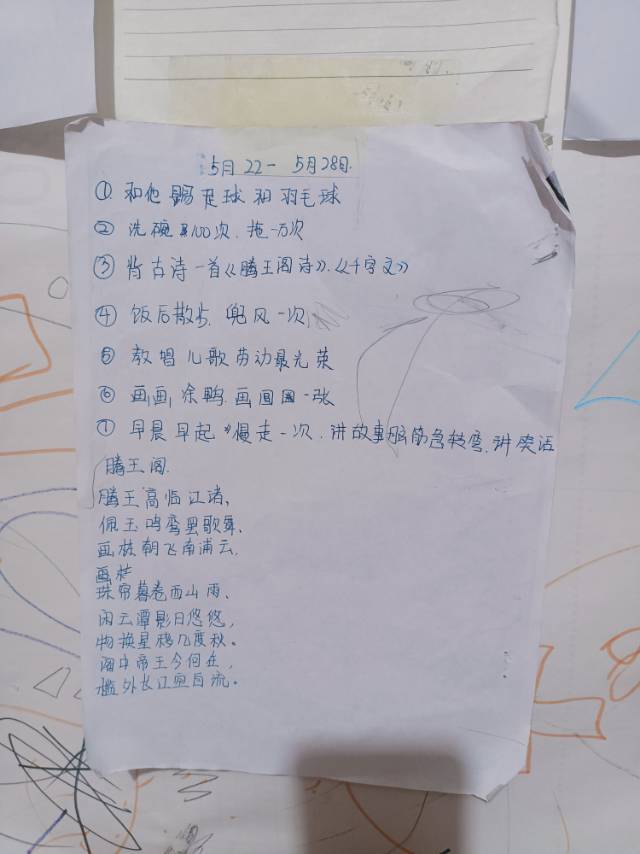 5月22一 5月28日.
① 和他踢足球和羽毛球
② 洗碗100次. 拖一万次
③ 背古诗一首《腾王阁诗》.《千字文》
④ 饭后散步. 兜风一次
⑤ 教唱儿歌劳动最光荣
⑥ 画画 涂鸭 画画 一张
⑦ 早晨早起 慢走一次. 讲故事脑筋急转弯. 讲笑话
腾王阁.
腾王高临江渚、
佩玉鸣鸾罢歌舞、
画栋朝飞南浦云.
画栏
珠帘暮卷西山雨、
闲云潭影日悠悠,
物换星移几度秋。
阁中帝王今何在,
槛外长江空自流。